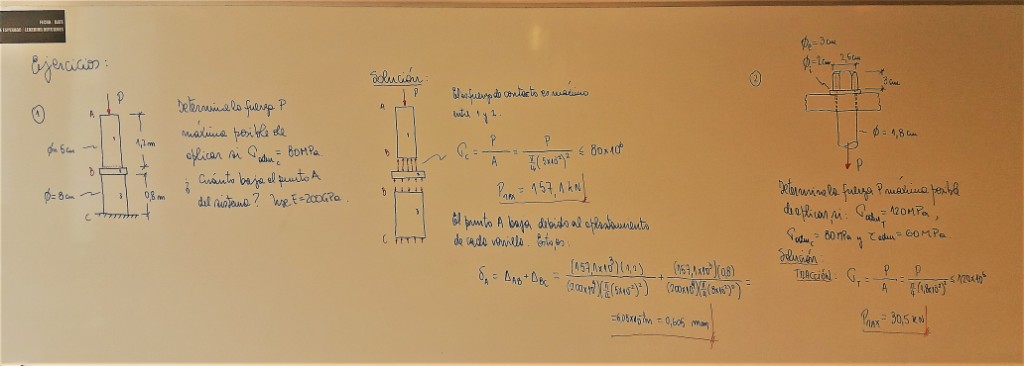 Ejercicios:
①
P
A
1
Ø=5cm
1,2m
B
Ø=8cm
2
0,8m
C
Determine la fuerza P
máxima posible de
aplicar si σadm_c = 80MPa
¿ Cuánto baja el punto A
del sistema? Use E=200GPa.
Solución:
P
A
1
B
B
2
C
El esfuerzo de contacto es máximo
entre 1 y 2.
σc = P/A = P/(π/4 (5x10⁻²)²) ≤ 80x10⁶
Pmax = 157,1 kN
El punto A baja debido al aplastamiento
de cada varilla. Esto es:
δA = ΔAB + ΔBC = (157,1x10³)(1,2)/((200x10⁹)(π/4 (5x10⁻²)²)) + (157,1x10³)(0,8)/((200x10⁹)(π/4 (8x10⁻²)²)) =
= 6.05x10⁻⁴m = 0,605 mm
②
Ø2= 3cm
Ø1=2cm
2,5cm
3cm
Ø = 1,8cm
P
Determine la fuerza P máxima posible
de aplicar si: σadm_T = 120MPa,
σadm_c = 80MPa y τadm = 60MPa.
Solución:
TRACCIÓN: σT = P/A = P/(π/4 (1,8x10⁻²)²) ≤ 120x10⁶
PMAX = 30,5 kN